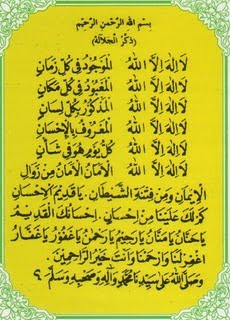 بِسْمِ اللهِ الرَّحْمٰنِ الرَّحِيْمِ
(ذِكْرُ الْجَلَالَةِ)
لَا اِلٰهَ اِلَّا اللهُ الْمَوْجُوْدُ فِى كُلِّ زَمَانٍ
لَا اِلٰهَ اِلَّا اللهُ الْمَعْبُوْدُ فِى كُلِّ مَكَانٍ
لَا اِلٰهَ اِلَّا اللهُ الْمَذْكُوْرُ بِكُلِّ لِسَانٍ
لَا اِلٰهَ اِلَّا اللهُ الْمَعْرُوْفُ بِالْاِحْسَانِ
لَا اِلٰهَ اِلَّا اللهُ كُلَّ يَوْمٍ هُوَ فِى شَأْنٍ
لَا اِلٰهَ اِلَّا اللهُ الْاَمَانُ الْاَمَانُ مِنْ زَوَالِ
الْاِيْمَانِ وَمِنْ فِتْنَةِ الشَّيْطَانِ. يَا قَدِيْمَ الْاِحْسَانِ
كَمْ لَكَ عَلَيْنَا مِنْ اِحْسَانٍ. اِحْسَانُكَ الْقَدِيْمُ
يَا حَنَّانُ يَا مَنَّانُ يَا رَحِيْمُ يَا رَحْمٰنُ يَا غَفُوْرُ يَا غَفَّارُ
اِغْفِرْ لَنَا وَارْحَمْنَا وَاَنْتَ خَيْرُ الرَّاحِمِيْنَ.
وَصَلَّى اللهُ عَلَى سَيِّدِنَا مُحَمَّدٍ وَاٰلِهِ وَصَحْبِهِ وَسَلَّمَ.